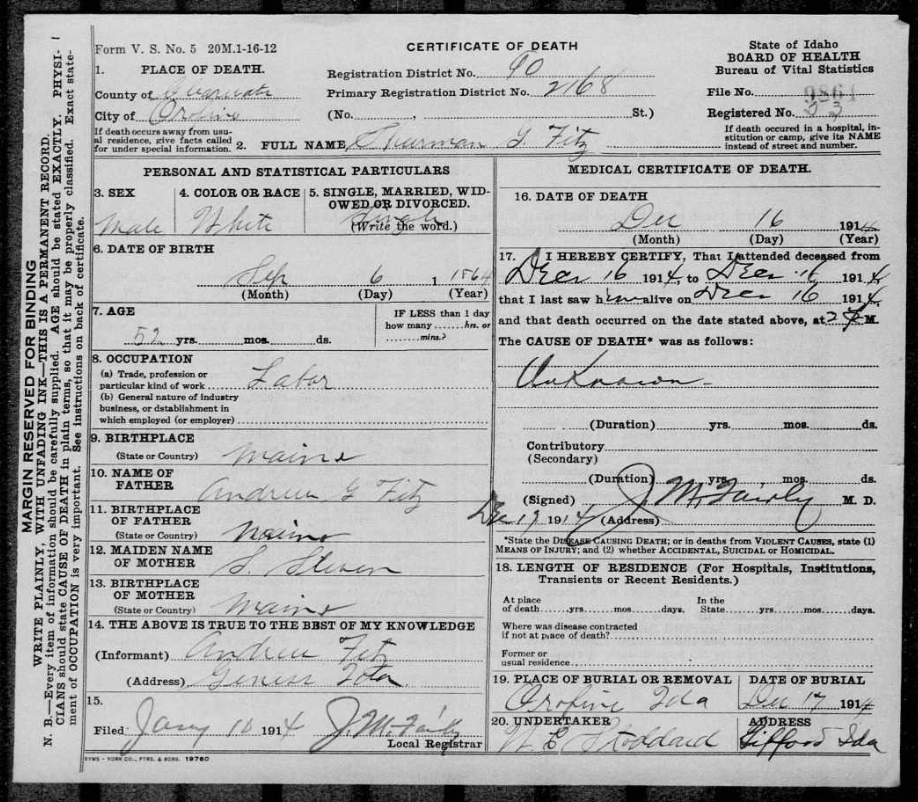 Form V. S. No. 5 20M.1-16-12
CERTIFICATE OF DEATH
State of Idaho
BOARD OF HEALTH
Bureau of Vital Statistics
File No. 9864
Registered No. 33
If death occured in a hospital, in-
stitution or camp, give its NAME
instead of street and number.
1. PLACE OF DEATH.
County of
City of Orofino
If death occurs away from usu-
al residence, give facts called
for under special information.
Registration District No. 90
Primary Registration District No. 2168
(No. St.)
2. FULL NAME Shurman G Fitz
PERSONAL AND STATISTICAL PARTICULARS
3. SEX
Male
4. COLOR OR RACE
White
5. SINGLE, MARRIED, WID-
OWED OR DIVORCED.
Single
(Write the word.)
6. DATE OF BIRTH
Sep 6 1864
(Month) (Day) (Year)
7. AGE
52 yrs. mos. ds.
IF LESS than 1 day
how many hrs. or
mins.?
8. OCCUPATION
(a) Trade, profession or
particular kind of work Labor
(b) General nature of industry
business, or dstablishment in
which employed (or employer)
9. BIRTHPLACE
(State or Country) Maine
10. NAME OF
FATHER Andrew G Fitz
11. BIRTHPLACE
OF FATHER
(State or Country) Maine
12. MAIDEN NAME
OF MOTHER S. Steven
13. BIRTHPLACE
OF MOTHER
(State or Country) Maine
14. THE ABOVE IS TRUE TO THE BEST OF MY KNOWLEDGE
(Informant) Andrew Fitz
(Address)
15.
Filed Jany 10 1914 J. M. Fairly
Local Registrar
SYMS - YORK CO., PTRS. & BDRS. 19760
MEDICAL CERTIFICATE OF DEATH.
16. DATE OF DEATH
Dec 16 1914
(Month) (Day) (Year)
17. I HEREBY CERTIFY, That I attended deceased from
Decr 16 1914, to Decr 16 1914,
that I last saw him alive on Decr 16 1914,
and that death occurred on the date stated above, at M.
The CAUSE OF DEATH* was as follows:
Unknown
(Duration) yrs. mos. ds.
Contributory
(Secondary)
(Duration) yrs. mos. ds.
(Signed) J. M. Fairly M. D.
Dec 17 1914 (Address)
*State the DISEASE CAUSING DEATH; or in deaths from VIOLENT CAUSES, state (1)
MEANS OF INJURY; and (2) whether ACCIDENTAL, SUICIDAL or HOMICIDAL.
18. LENGTH OF RESIDENCE (For Hospitals, Institutions,
Transients or Recent Residents.)
At place
of death yrs. mos. days.
In the
State yrs. mos. days.
Where was disease contracted
if not at place of death?
Former or
usual residence
19. PLACE OF BURIAL OR REMOVAL
Orofino Ida
DATE OF BURIAL
Dec 17 1914
20. UNDERTAKER
W E Stoddard
ADDRESS
Gifford Ida
MARGIN RESERVED FOR BINDING
WRITE PLAINLY, WITH UNFADING INK—THIS IS A PERMANENT RECORD.
N. B.—Every item of information should be carefully supplied. AGE should be stated EXACTLY. PHYSI-
CIANS should state CAUSE OF DEATH in plain terms, so that it may be properly classified. Exact state-
ment of OCCUPATION is very important. See instructions on back of certificate.